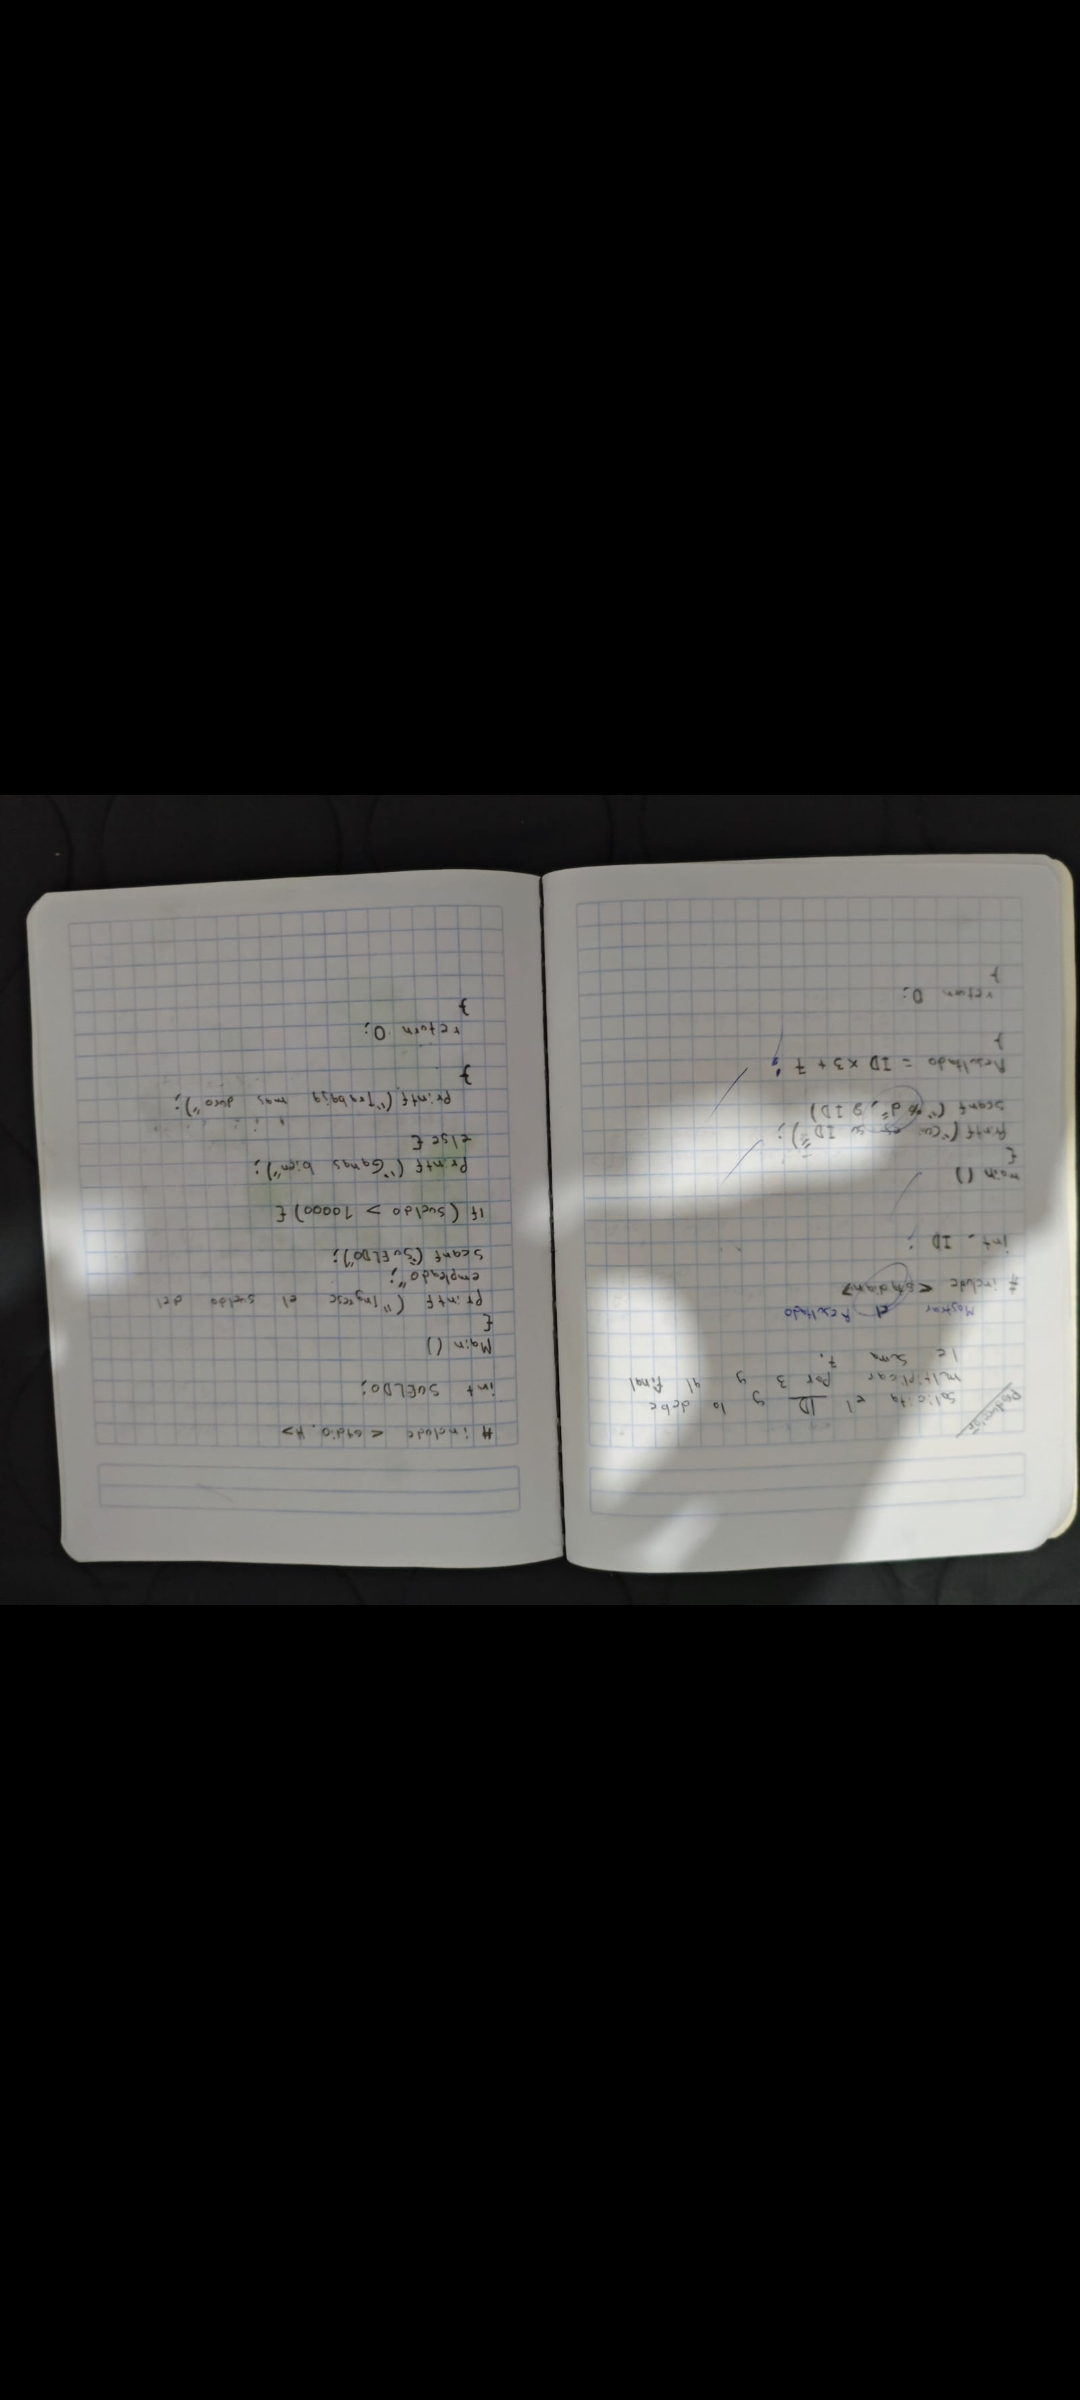 Solicita el ID y lo debe
multiplicar por 3 y al final
le suma 7.
Mostrar el Resultado
# include
int ID;
main ()
{
Printf ("cual es su ID");
scanf ("%d", & ID)
Resultado = ID x 3 + 7;
}
return 0;
}
# include < stdio.H>
int SUELDO;
Main ()
{
Printf ("Ingrese el sueldo del
empleado";
scanf ("SUELDO");
If (sueldo > 10000) {
Printf ("Ganas bien");
else {
Printf ("Trabaja mas duro");
}
return 0;
}